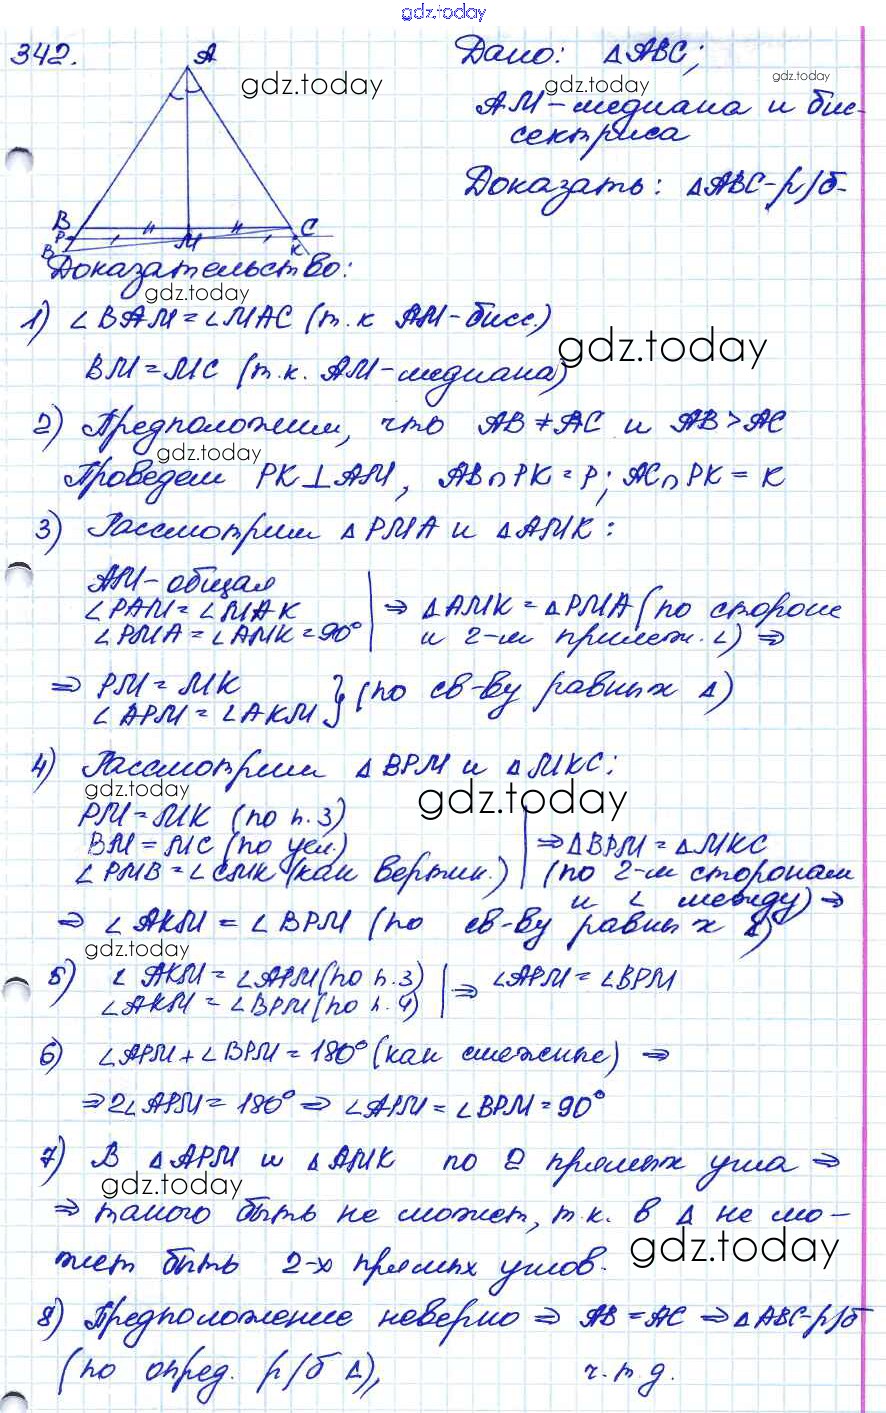 gdz.today
342.
A
gdz.today
B
C
P
M
K
B
Дано: △ABC;
gdz.today
gdz.today
AM-медиана и бис-
сектриса
Доказать: △ABC-р/б-
Доказательство:
gdz.today
1) ∠BAM=∠MAC (т.к AM-бисс.)
gdz.today
BM=MC (т.к. AM-медиана)
2) Предположим, что AB≠AC и AB>AC
gdz.today
Проведем PK⊥AM, AB∩PK=P; AC∩PK=K
3) Рассмотрим △PMA и △AMK:
AM-общая
∠PAM=∠MAK
∠PMA=∠AMK=90°
⇒ △AMK=△PMA (по стороне
и 2-м прилеж.∠) ⇒
⇒ PM=MK
∠APM=∠AKM } (по св-ву равных △)
4) Рассмотрим △BPM и △MKC:
gdz.today
gdz.today
PM=MK (по п.3)
BM=MC (по усл.)
∠PMB=∠CMK (как вертик.)
⇒△BPM=△MKC
(по 2-м сторонам
и ∠ между) ⇒
⇒ ∠AKM=∠BPM (по св-ву равных △)
gdz.today
5) ∠AKM=∠APM(по п.3)
∠AKM=∠BPM(по п.4)
⇒ ∠APM=∠BPM
6) ∠APM+∠BPM=180° (как смежные) ⇒
⇒2∠APM=180° ⇒ ∠APM=∠BPM=90°
7) В △APM и △AMK по 2 прямых угла ⇒
gdz.today
⇒ такого быть не может, т.к. в △ не мо-
gdz.today
жет быть 2-х прямых углов.
8) Предположение неверно ⇒ AB=AC ⇒△ABC-р/б
(по опред. р/б △), ч.т.д.